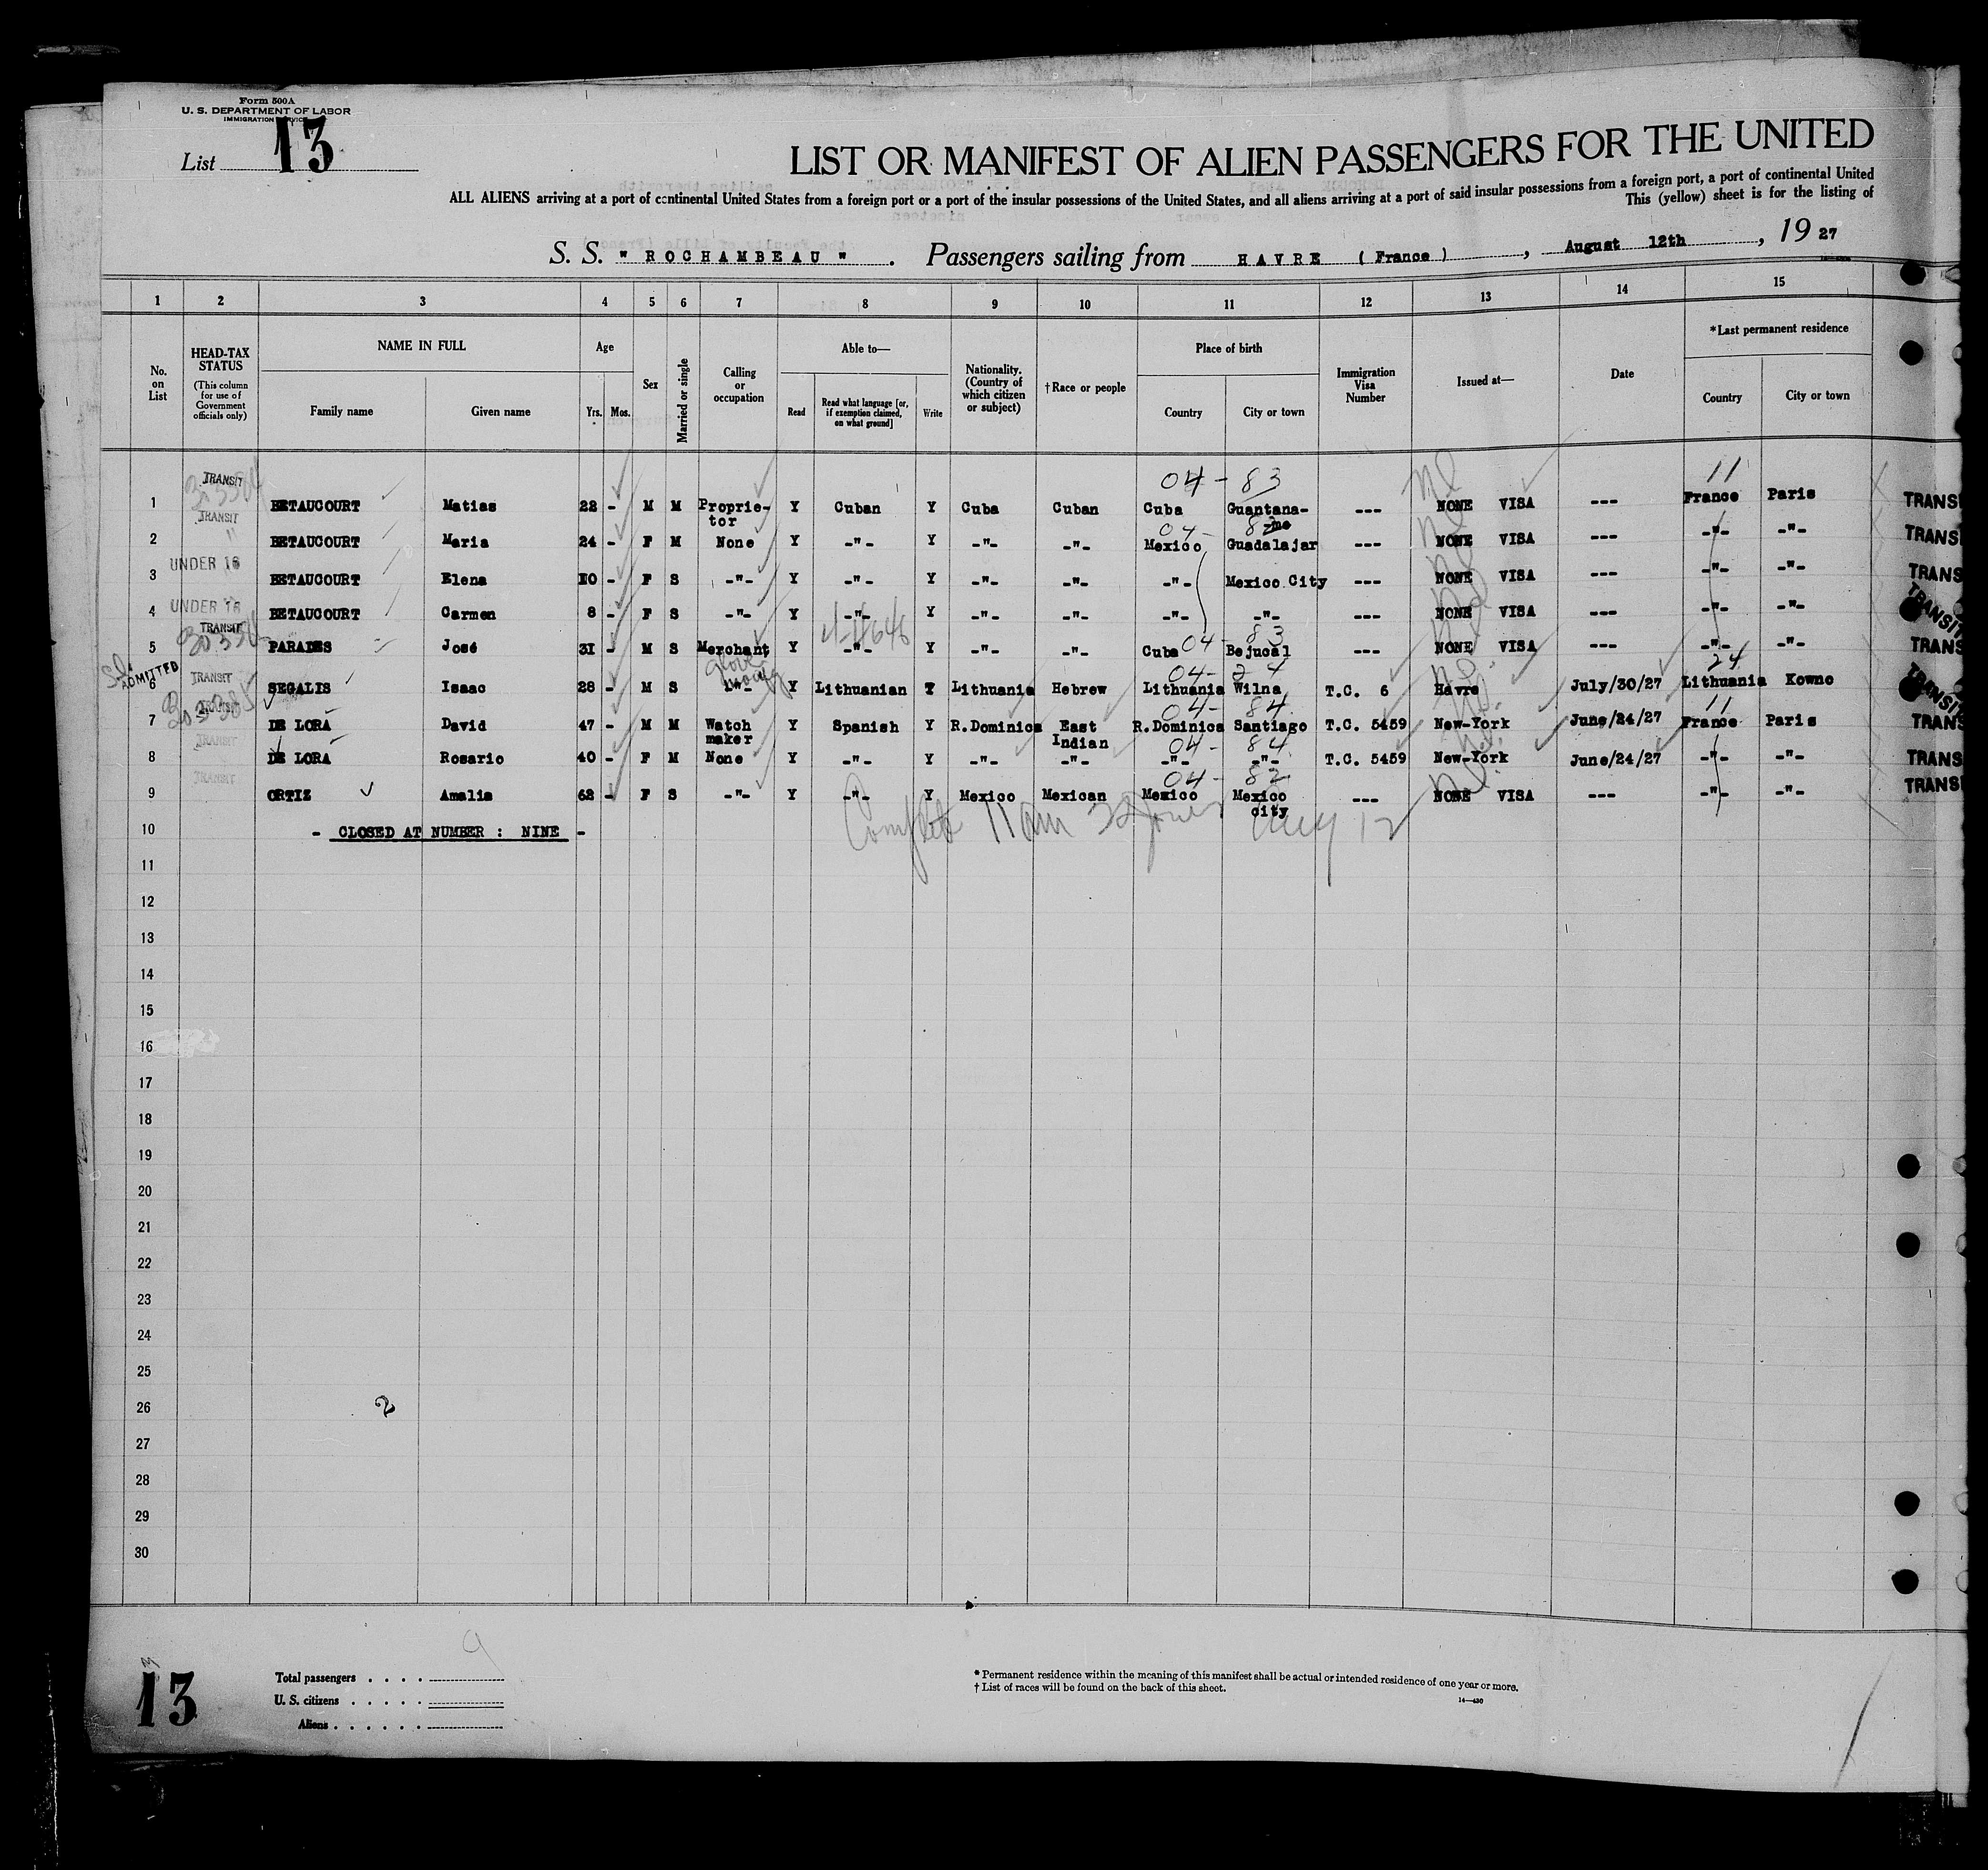 Form 500A
U. S. DEPARTMENT OF LABOR
IMMIGRATION SERVICE
List 13
LIST OR MANIFEST OF ALIEN PASSENGERS FOR THE UNITED
ALL ALIENS arriving at a port of continental United States from a foreign port or a port of the insular possessions of the United States, and all aliens arriving at a port of said insular possessions from a foreign port, a port of continental United
This (yellow) sheet is for the listing of
S. S. " ROCHAMBEAU " . Passengers sailing from HAVRE ( France ) , August 12th , 19 27
1 2 3 4 5 6 7 8 9 10 11 12 13 14 15
No. on List
HEAD-TAX STATUS (This column for use of Government officials only)
NAME IN FULL
Family name Given name
Age
Yrs. Mos.
Sex
Married or single
Calling or occupation
Able to—
Read Read what language [or, if exemption claimed, on what ground] Write
Nationality. (Country of which citizen or subject)
†Race or people
Place of birth
Country City or town
Immigration Visa Number
Issued at—
Date
*Last permanent residence
Country City or town
TRANSIT 04 - 83 11
1 BETAUCOURT Matias 22 - M M Proprie- Y Cuban Y Cuba Cuban Cuba Guantana- --- NONE VISA --- France Paris TRANSI
tor mo
TRANSIT 04 - 82
2 BETAUCOURT Maria 24 - F M None Y -"- Y -"- -"- Mexico Guadalajar --- NONE VISA --- -"- -"- TRANSI
UNDER 16
3 BETAUCOURT Elena 10 - F S -"- Y -"- Y -"- -"- -"- Mexico City --- NONE VISA --- -"- -"- TRANS
UNDER 16
4 BETAUCOURT Carmen 8 - F S -"- Y -"- Y -"- -"- -"- -"- --- NONE VISA --- -"- -"- TRANSIT
TRANSIT 04 83
5 PARADES José 31 - M S Merchant Y -"- Y -"- -"- Cuba Bejucal --- NONE VISA --- -"- -"- TRANS
ADMITTED TRANSIT glove 04 - 24 24
6 SEGALIS Isaac 28 - M S -"- Y Lithuanian Y Lithuania Hebrew Lithuania Wilna T.C. 6 Havre July/30/27 Lithuania Kowno TRANSIT
TRANSIT 04 - 84 11
7 DE LORA David 47 - M M Watch Y Spanish Y R.Dominica East R.Dominica Santiago T.C. 5459 New-York June/24/27 France Paris TRANS
maker Indian
TRANSIT 04 - 84
8 DE LORA Rosario 40 - F M None Y -"- Y -"- -"- -"- -"- T.C. 5459 New-York June/24/27 -"- -"- TRANS
TRANSIT 04 - 82
9 ORTIZ Amalia 62 - F S -"- Y -"- Y Mexico Mexican Mexico Mexico --- NONE VISA --- -"- -"- TRANSI
city
10 - CLOSED AT NUMBER : NINE -
11
12
13
14
15
16
17
18
19
20
21
22
23
24
25
26 2
27
28
29
30
9
13
Total passengers . . . .
U. S. citizens . . . . .
Aliens . . . . . .
* Permanent residence within the meaning of this manifest shall be actual or intended residence of one year or more.
† List of races will be found on the back of this sheet.
14—430